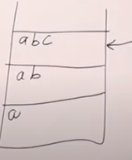 abc
ab
a